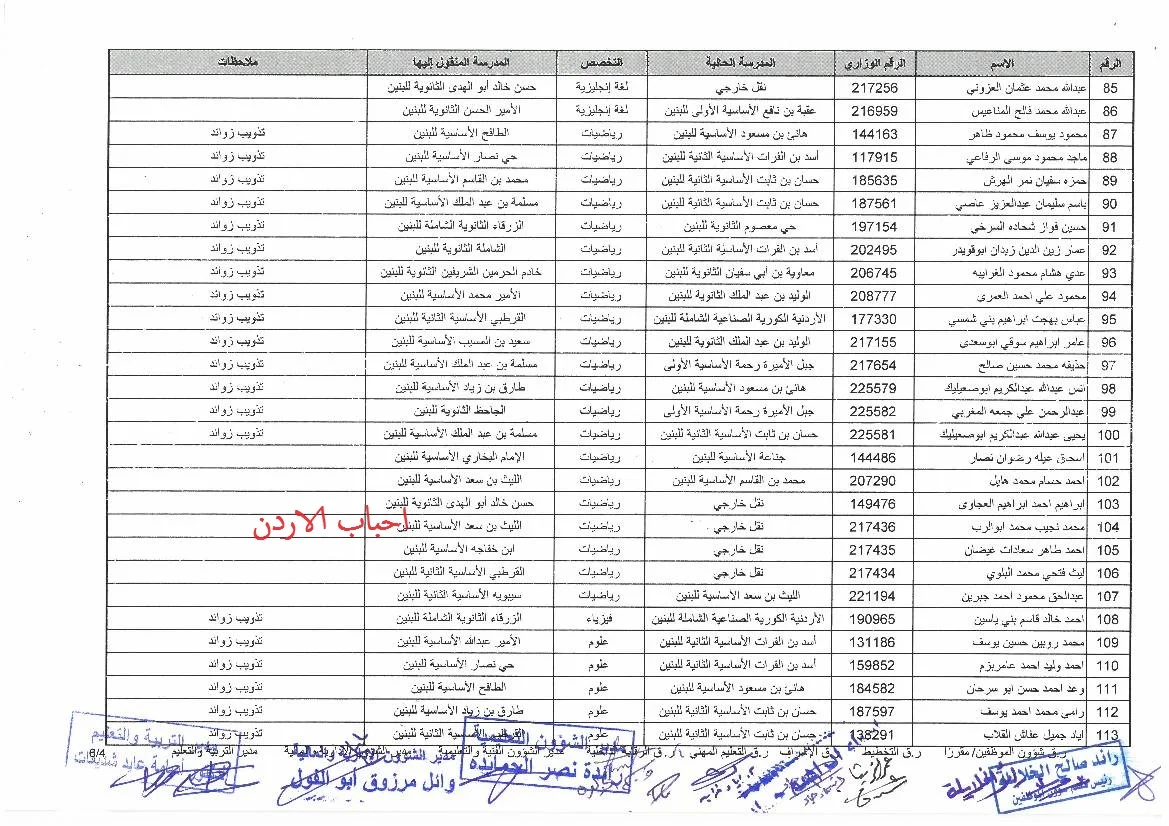 الرقم الاسم الرقم الوزاري المدرسة الحالية التخصص المدرسة المنقول إليها ملاحظات
85 عبدالله محمد عثمان العزوني 217256 نقل خارجي لغة إنجليزية حسن خالد أبو الهدى الثانوية للبنين
86 عبدالله محمد فالح المناعيس 216959 عقبة بن نافع الأساسية الأولى للبنين لغة إنجليزية الأمير الحسن الثانوية للبنين
87 محمود يوسف محمود ظاهر 144163 هانئ بن مسعود الأساسية للبنين رياضيات الطافح الأساسية للبنين تذويب زوائد
88 ماجد محمود موسى الرفاعي 117915 أسد بن الفرات الأساسية الثانية للبنين رياضيات حي نصار الأساسية للبنين تذويب زوائد
89 حمزه سفيان نمر الهرش 185635 حسان بن ثابت الأساسية الثانية للبنين رياضيات محمد بن القاسم الأساسية للبنين تذويب زوائد
90 باسم سليمان عبدالعزيز عاصي 187561 حسان بن ثابت الأساسية الثانية للبنين رياضيات مسلمة بن عبد الملك الأساسية للبنين تذويب زوائد
91 حسين فواز شحاده السرخي 197154 حي معصوم الثانوية للبنين رياضيات الزرقاء الثانوية الشاملة للبنين تذويب زوائد
92 عمار زين الدين زيدان ابوقويدر 202495 أسد بن الفرات الأساسية الثانية للبنين رياضيات الشاملة الثانوية للبنين تذويب زوائد
93 عدي هشام محمود الغرايبه 206745 معاوية بن أبي سفيان الثانوية للبنين رياضيات خادم الحرمين الشريفين الثانوية للبنين تذويب زوائد
94 محمود علي احمد العمري 208777 الوليد بن عبد الملك الثانوية للبنين رياضيات الأمير محمد الأساسية للبنين تذويب زوائد
95 عباس بهجت ابراهيم بني شمسي 177330 الأردنية الكورية الصناعية الشاملة للبنين رياضيات القرطبي الأساسية الثانية للبنين تذويب زوائد
96 عامر ابراهيم سوقي ابوسعدى 217155 الوليد بن عبد الملك الثانوية للبنين رياضيات سعيد بن المسيب الأساسية للبنين تذويب زوائد
97 حذيفه محمد حسين صالح 217654 جبل الأميرة رحمة الأساسية الأولى رياضيات مسلمة بن عبد الملك الأساسية للبنين تذويب زوائد
98 انس عبدالله عبدالكريم ابوصعيليك 225579 هانئ بن مسعود الأساسية للبنين رياضيات طارق بن زياد الأساسية للبنين تذويب زوائد
99 عبدالرحمن علي جمعه المغربي 225582 جبل الأميرة رحمة الأساسية الأولى رياضيات الجاحظ الثانوية للبنين تذويب زوائد
100 يحيى عبدالله عبدالكريم ابوصعيليك 225581 حسان بن ثابت الأساسية الثانية للبنين رياضيات مسلمة بن عبد الملك الأساسية للبنين تذويب زوائد
101 اسحق عيله رضوان نصار 144486 جناعة الأساسية للبنين رياضيات الإمام البخاري الأساسية للبنين
102 احمد حسام محمد هايل 207290 محمد بن القاسم الأساسية للبنين رياضيات الليث بن سعد الأساسية للبنين
103 ابراهيم احمد ابراهيم العجاوى 149476 نقل خارجي رياضيات حسن خالد أبو الهدى الثانوية للبنين
104 محمد نجيب محمد ابوالرب 217436 نقل خارجي رياضيات الليث بن سعد الأساسية للبنين
احباب الاردن
105 احمد طاهر سعادات غيضان 217435 نقل خارجي رياضيات ابن خفاجه الأساسية للبنين
106 ليث فتحي محمد البلوي 217434 نقل خارجي رياضيات القرطبي الأساسية الثانية للبنين
107 عبدالحق محمود احمد جبرين 221194 الليث بن سعد الأساسية للبنين رياضيات سيبويه الأساسية الثانية للبنين
108 احمد خالد قاسم بني ياسين 190965 الأردنية الكورية الصناعية الشاملة للبنين فيزياء الزرقاء الثانوية الشاملة للبنين تذويب زوائد
109 محمد روبين حسين يوسف 131186 أسد بن الفرات الأساسية الثانية للبنين علوم الأمير عبدالله الأساسية للبنين تذويب زوائد
110 احمد وليد احمد عامريزم 159852 أسد بن الفرات الأساسية الثانية للبنين علوم حي نصار الأساسية للبنين تذويب زوائد
111 وعد احمد حسن ابو سرحان 184582 هانئ بن مسعود الأساسية للبنين علوم الطافح الأساسية للبنين تذويب زوائد
112 رامى محمد احمد يوسف 187597 حسان بن ثابت الأساسية الثانية للبنين علوم طارق بن زياد الأساسية للبنين تذويب زوائد
113 اياد جميل عفاش القلاب 138291 حسان بن ثابت الأساسية الثانية للبنين علوم الأساسية الثانية للبنين تذويب زوائد
ر.ق شؤون الموظفين/ مقررًا ر.ق التخطيط ر.ق الإشراف ر.ق التعليم المهني ر.ق الرقابة الداخلية مدير الشؤون الفنية والتعليمية مدير الشؤون الإدارية والمالية مدير التربية والتعليم 6/4
رائد صالح الخلايلة
مدير الشؤون التعليمية
رائدة نصر الحمايده
مدير الشؤون الإدارية والمالية
وائل مرزوق أبو الفول
التربية والتعليم